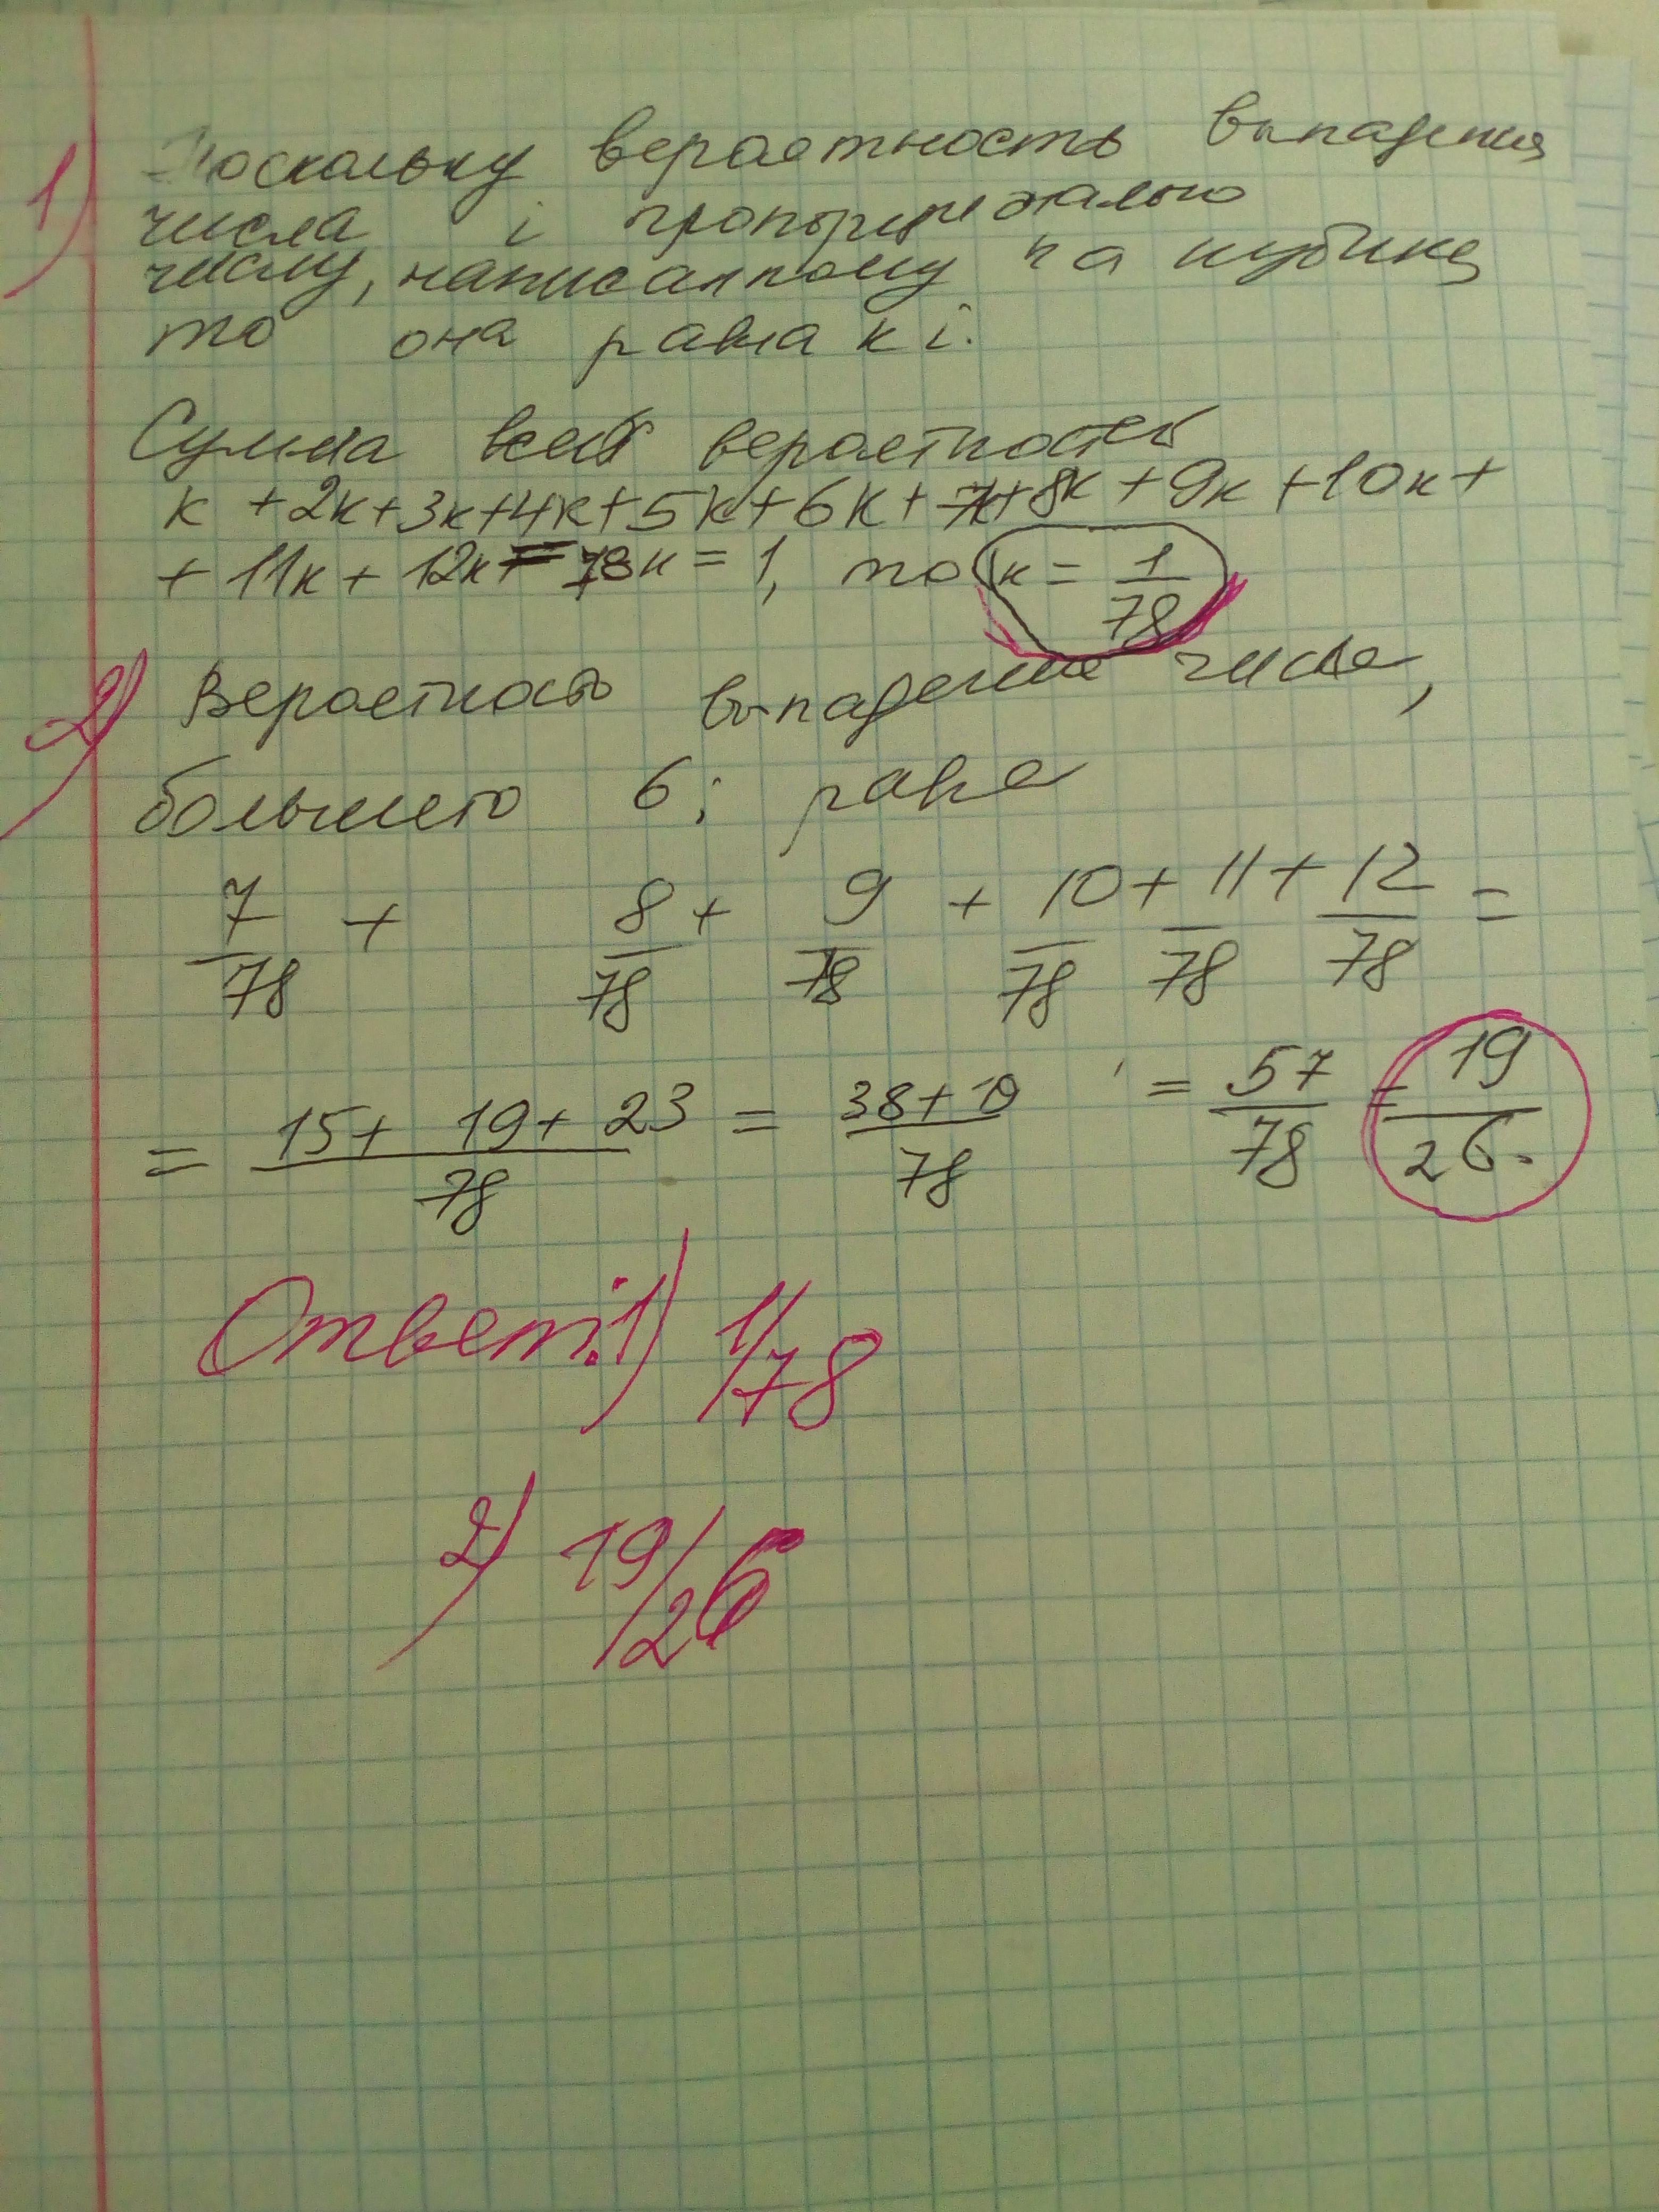 1) Поскольку вероятность выпадения
числа i пропорционально
числу, написанному на кубике
то она равна к i.
Сумма всей вероятностей
к + 2к + 3к + 4к + 5к + 6к + 7к + 8к + 9к + 10к +
+ 11к + 12к = 78к = 1, то к = 1/78
2) Вероятность выпадения числа,
большего 6; равна
7/78 + 8/78 + 9/78 + 10/78 + 11/78 + 12/78 =
= 15 + 19 + 23/78 = 38 + 19/78 = 57/78 = 19/26.
Ответ: 1) 1/78
2) 19/26